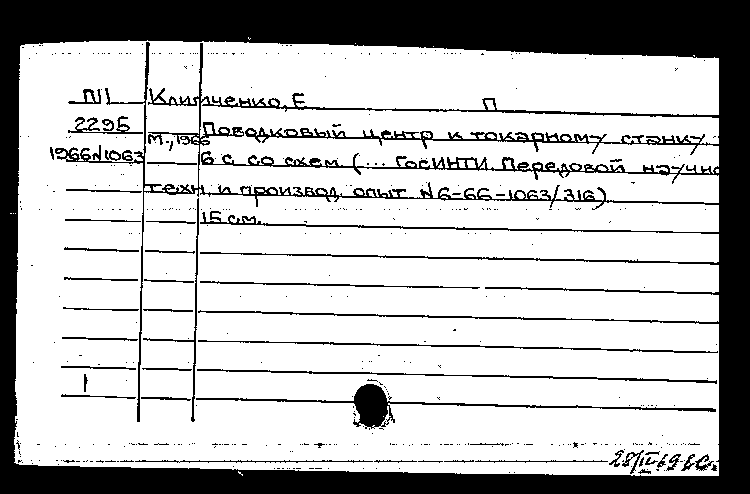 П/I Климченко, Е П
2295 Поводковый центр к токарному станку.
1966N1063 М., 1966
6 с со схем (... ГосИНТИ. Передовой научно
техн. и производ. опыт N6-66-1063/316)
15 см.
1
28/IV 69